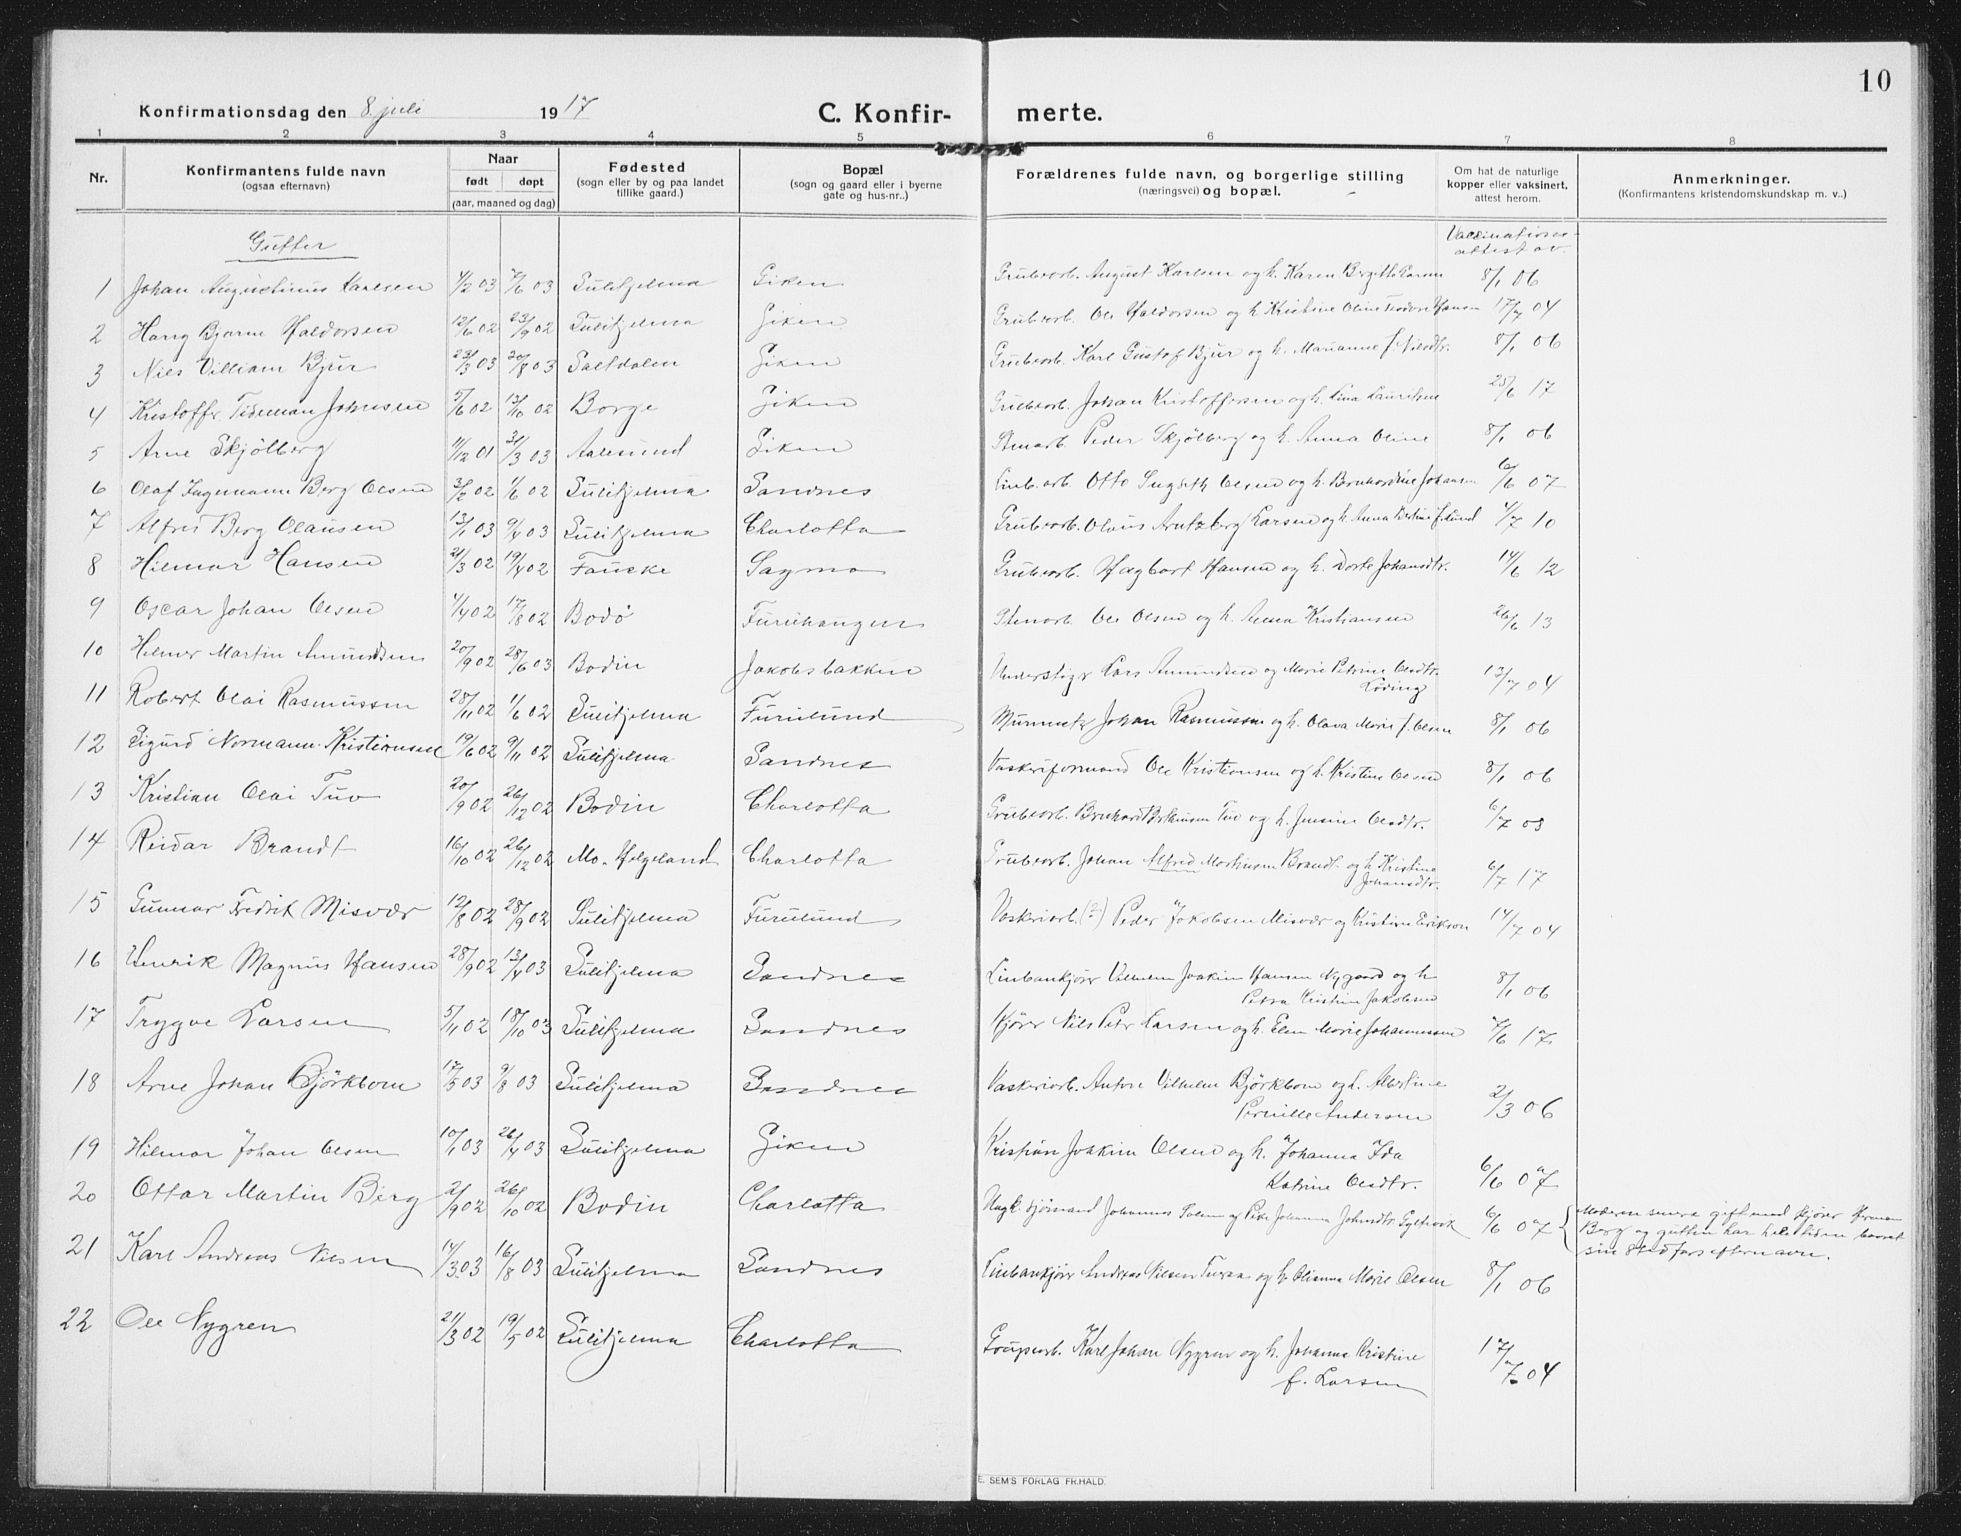 10
Konfirmationsdag den 8. juli 1917 C. Konfir- merte.
1 2 3 4 5 6 7 8
Nr. Konfirmantens fulde navn (ogsaa efternavn) Naar født døpt (aar, maaned og dag) Fødested (sogn eller by og paa landet tillike gaard.) Bopæl (sogn og gaard eller i byerne gate og hus-nr..) Forældrenes fulde navn, og borgerlige stilling (næringsvei) og bopæl. Om hat de naturlige kopper eller vaksinert, attest herom. Anmerkninger. (Konfirmantens kristendomskundskap m. v..)
Gutter Vaccinations-
attest av.
1 Johan Augustinus Karlsen 1/2 03 7/6 03 Sulitjelma Giken Grubearb. August Karlsen og h. Karen Bergith Larsen 8/1 06
2 Hans Bjarne Haldorsen 12/6 02 23/9 02 Sulitjelma Giken Grubearb. Ole Haldorsen og h. Kristine Oline Hansen 17/7 04
3 Nils Villiam Bjur 23/3 03 20/8 03 Saltdalen Giken Grubearb. Karl Gustof Bjur og h. Marianne f. Nilsdtr. 8/1 06
4 Kristoffer Tideman Johansen 5/6 02 13/10 02 Borge Giken Grubearb. Johan Kristoffersen og h. Lina Lauritsen 25/6 17
5 Arne Skjølberg 11/12 01 31/3 03 Aalesund Giken Stenarb. Peder Skjølberg og h. Anna Oline 8/1 06
6 Olaf Ingemann Berg Olsen 02 1/6 02 Sulitjelma Sandnes Linb.arb. Otto Olsen og h. Bernhardine Johansen 6/6 07
7 Alfred Berg Olausen 13/1 03 9/4 03 Sulitjelma Charlotta Grubearb. Olaus Arntzberg Larsen og h. Anna Bertine f. Lund 1/7 10
8 Hilmar Hansen 21/3 02 19/4 02 Fauske Sagmo Grubearb. Hagbart Hansen og h. Dorte Johansdtr. 14/6 12
9 Oscar Johan Olsen 1/4 02 17/8 02 Bodø Furuhaugen Stenarb. Ole Olsen og h. Anna Kristiansen 26/6 13
10 Hilmer Martin Amundsen 20/9 02 28/6 03 Bodin Jakobsbakken Understiger Lars Amundsen og Marie Petrine Olsdtr. 13/7 04
Løding
11 Robert Olai Rasmussen 28/11 02 1/6 02 Sulitjelma Furulund Murmester Johan Rasmussen og h. Olava Marie f. Olsen 8/1 06
12 Sigurd Normann Kristiansen 19/6 02 9/11 02 Sulitjelma Sandnes Vaskeriformand Ole Kristiansen og h. Kristine Olsen 8/1 06
13 Kristian Olai Tuv 20/9 02 26/12 02 Bodin Charlotta Grubearb. Bernhard Tuv og h. Jensine Olsdtr. 6/7 03
14 Reidar Brandt 16/10 02 26/12 02 Mo. Helgeland Charlotta Grubearb. Johan Alfred Martinsen Brandt og h. Kristine 6/7 17
Johansdtr.
15 Gunnar Fredrik Misvær 12/8 02 28/9 02 Sulitjelma Furulund Vaskeriarb. (?) Peder Jakobsen Misvær og Kristine Erikson 14/7 04
16 Henrik Magnus Hansen 28/9 02 13/4 03 Sulitjelma Sandnes Linbankjører Vilhelm Joakim Hansen Nygaard og h 8/1 06
Petra Kristine Jakobsen
17 Trygve Larsen 5/11 02 18/10 03 Sulitjelma Sandnes Kjører Nils Peter Larsen og h. Elen Marie Johannessen 7/6 17
18 Arne Johan Björkbom 17/5 03 9/8 03 Sulitjelma Sandnes Vaskeriarb. Anton Vilhelm Björkbom og h. Albertine 2/3 06
Pernille Andersen
19 Hilmar Johan Olsen 10/1 03 26/4 03 Sulitjelma Giken Kristian Joakim Olsen og h. Johanna Ida 6/6 07
Katrine Olsdtr.
20 Ottar Martin Berg 2/9 02 26/10 02 Bodin Charlotta Ungk. Johannes og Pike Johanna Johnsdtr. 6/6 07 Moderen senere gift med kjører Herman
Berg og gutten har hele tiden baaret
sin stedfars efternavn.
21 Karl Andreas Nilsen 14/3 03 16/8 03 Sulitjelma Sandnes Linbankjører Andreas Nilsen og h. Olianna Marie Olsen 8/1 06
22 Ole Nygren 21/3 02 19/5 02 Sulitjelma Charlotta Karl Johan Nygren og h. Johanna Kristine 17/7 04
f. Larsen
E. SEM'S FORLAG FR.HALD.